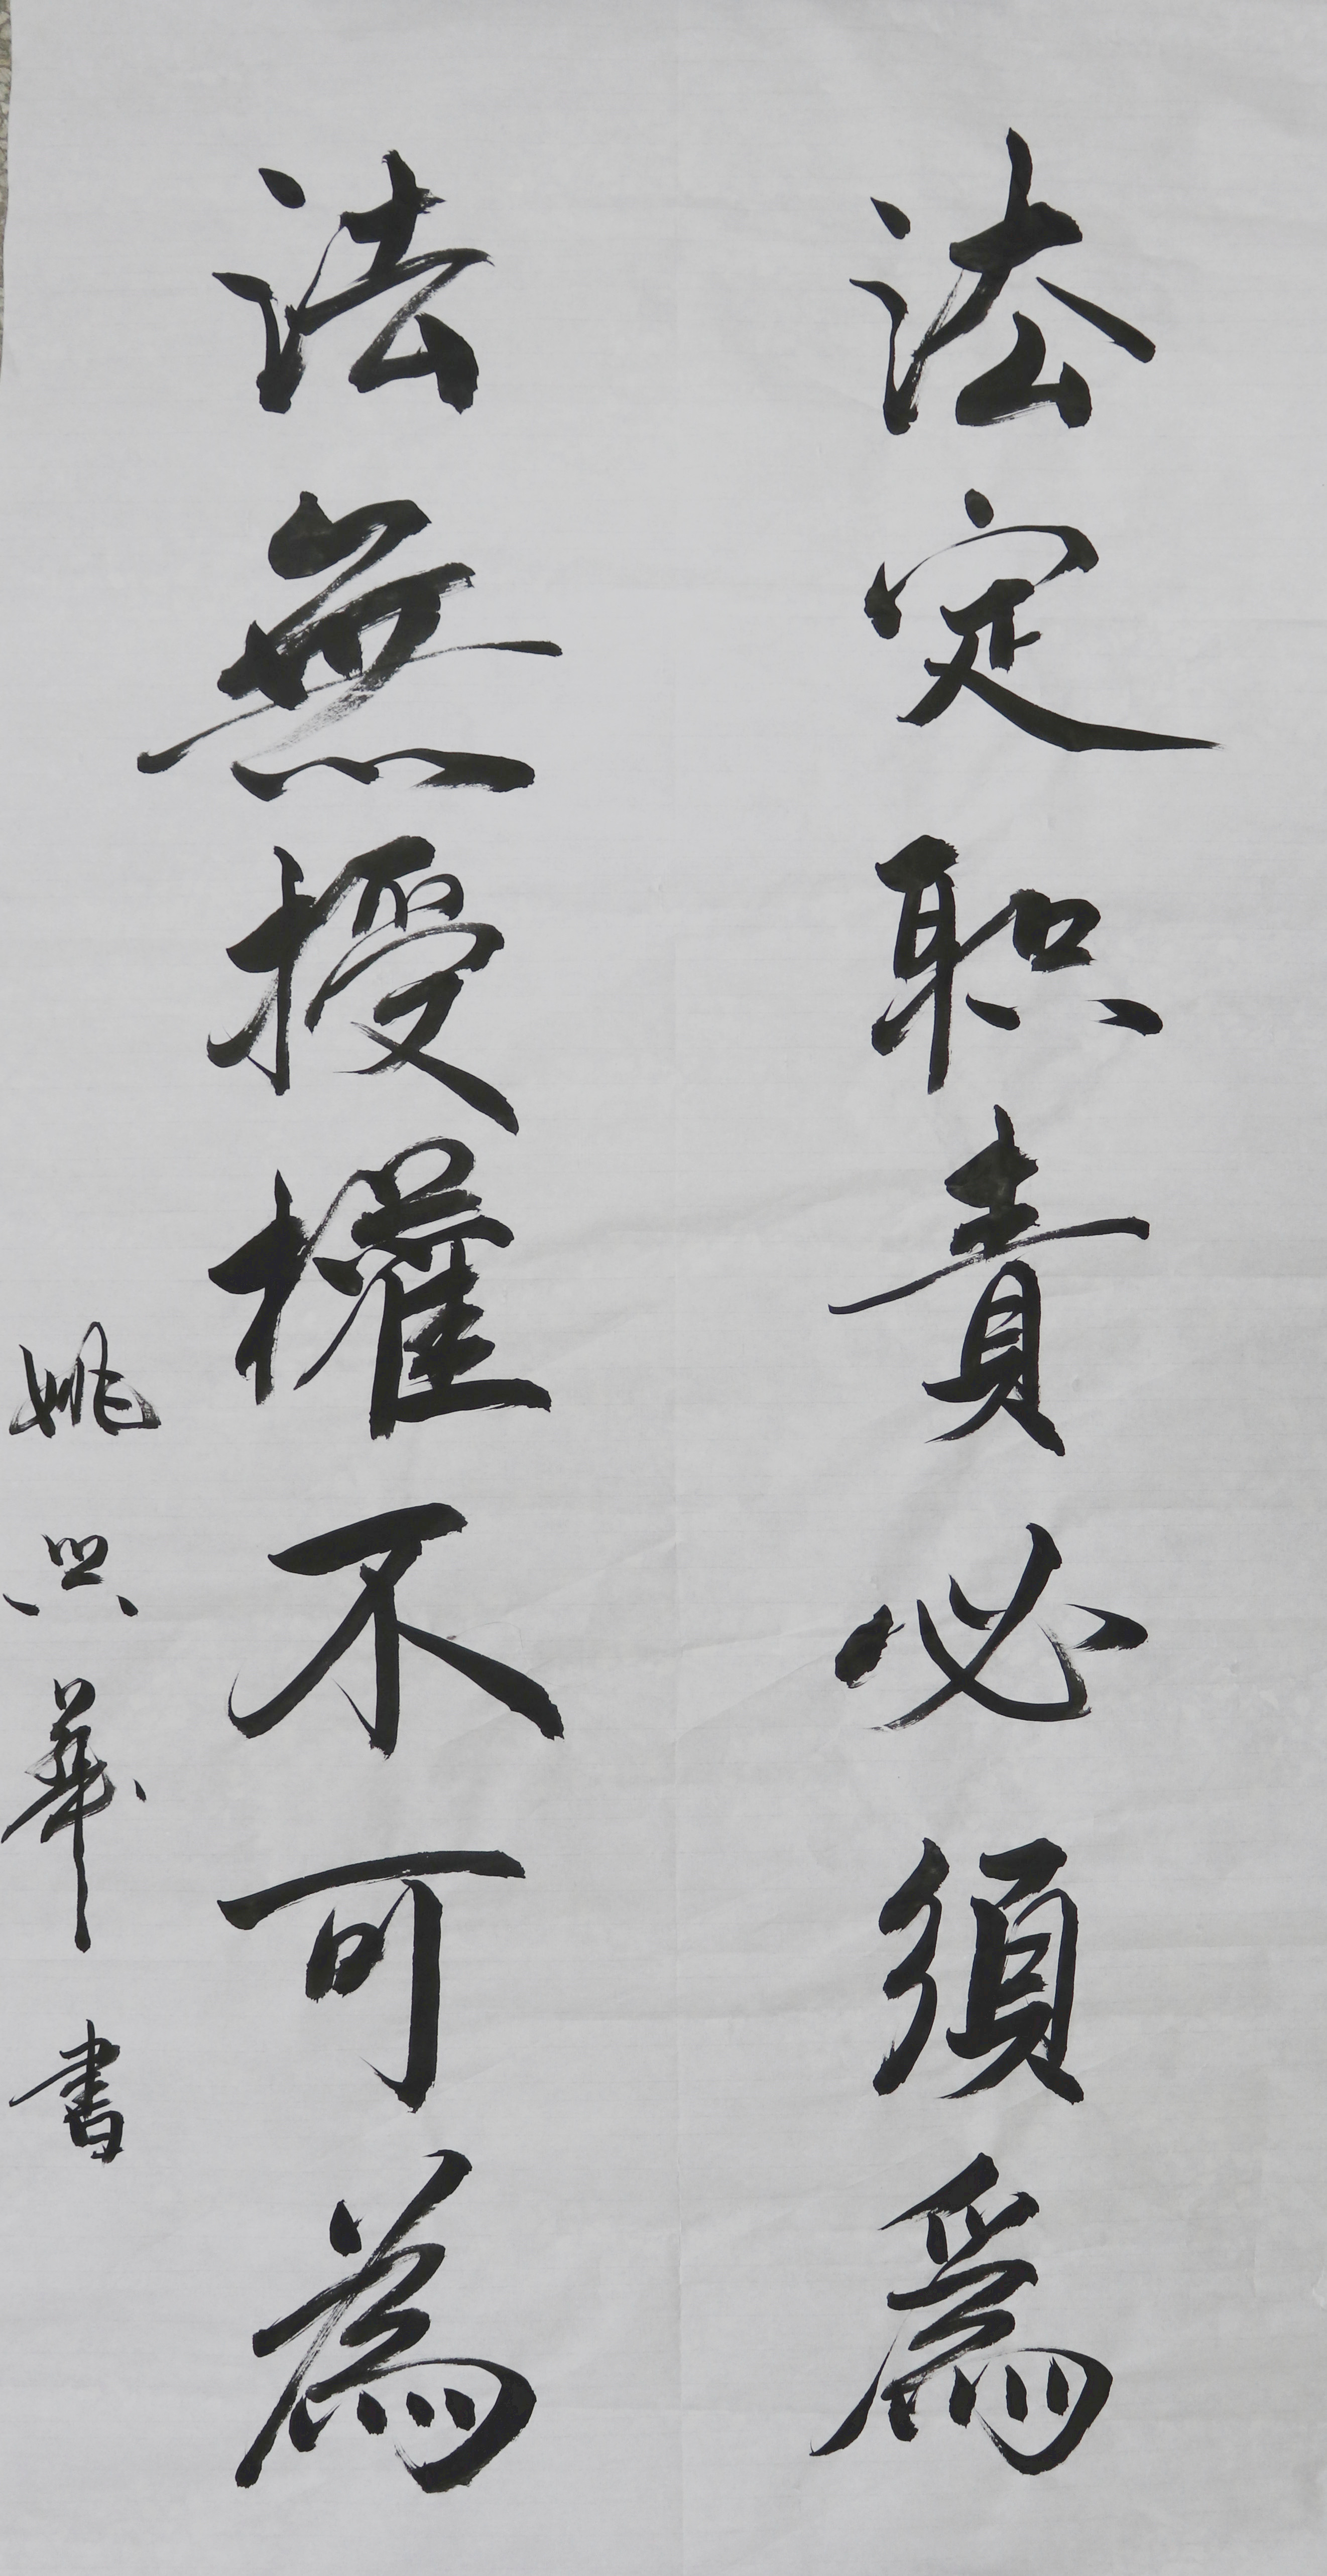 法定职責必須爲
法無授權不可為
姚興華書